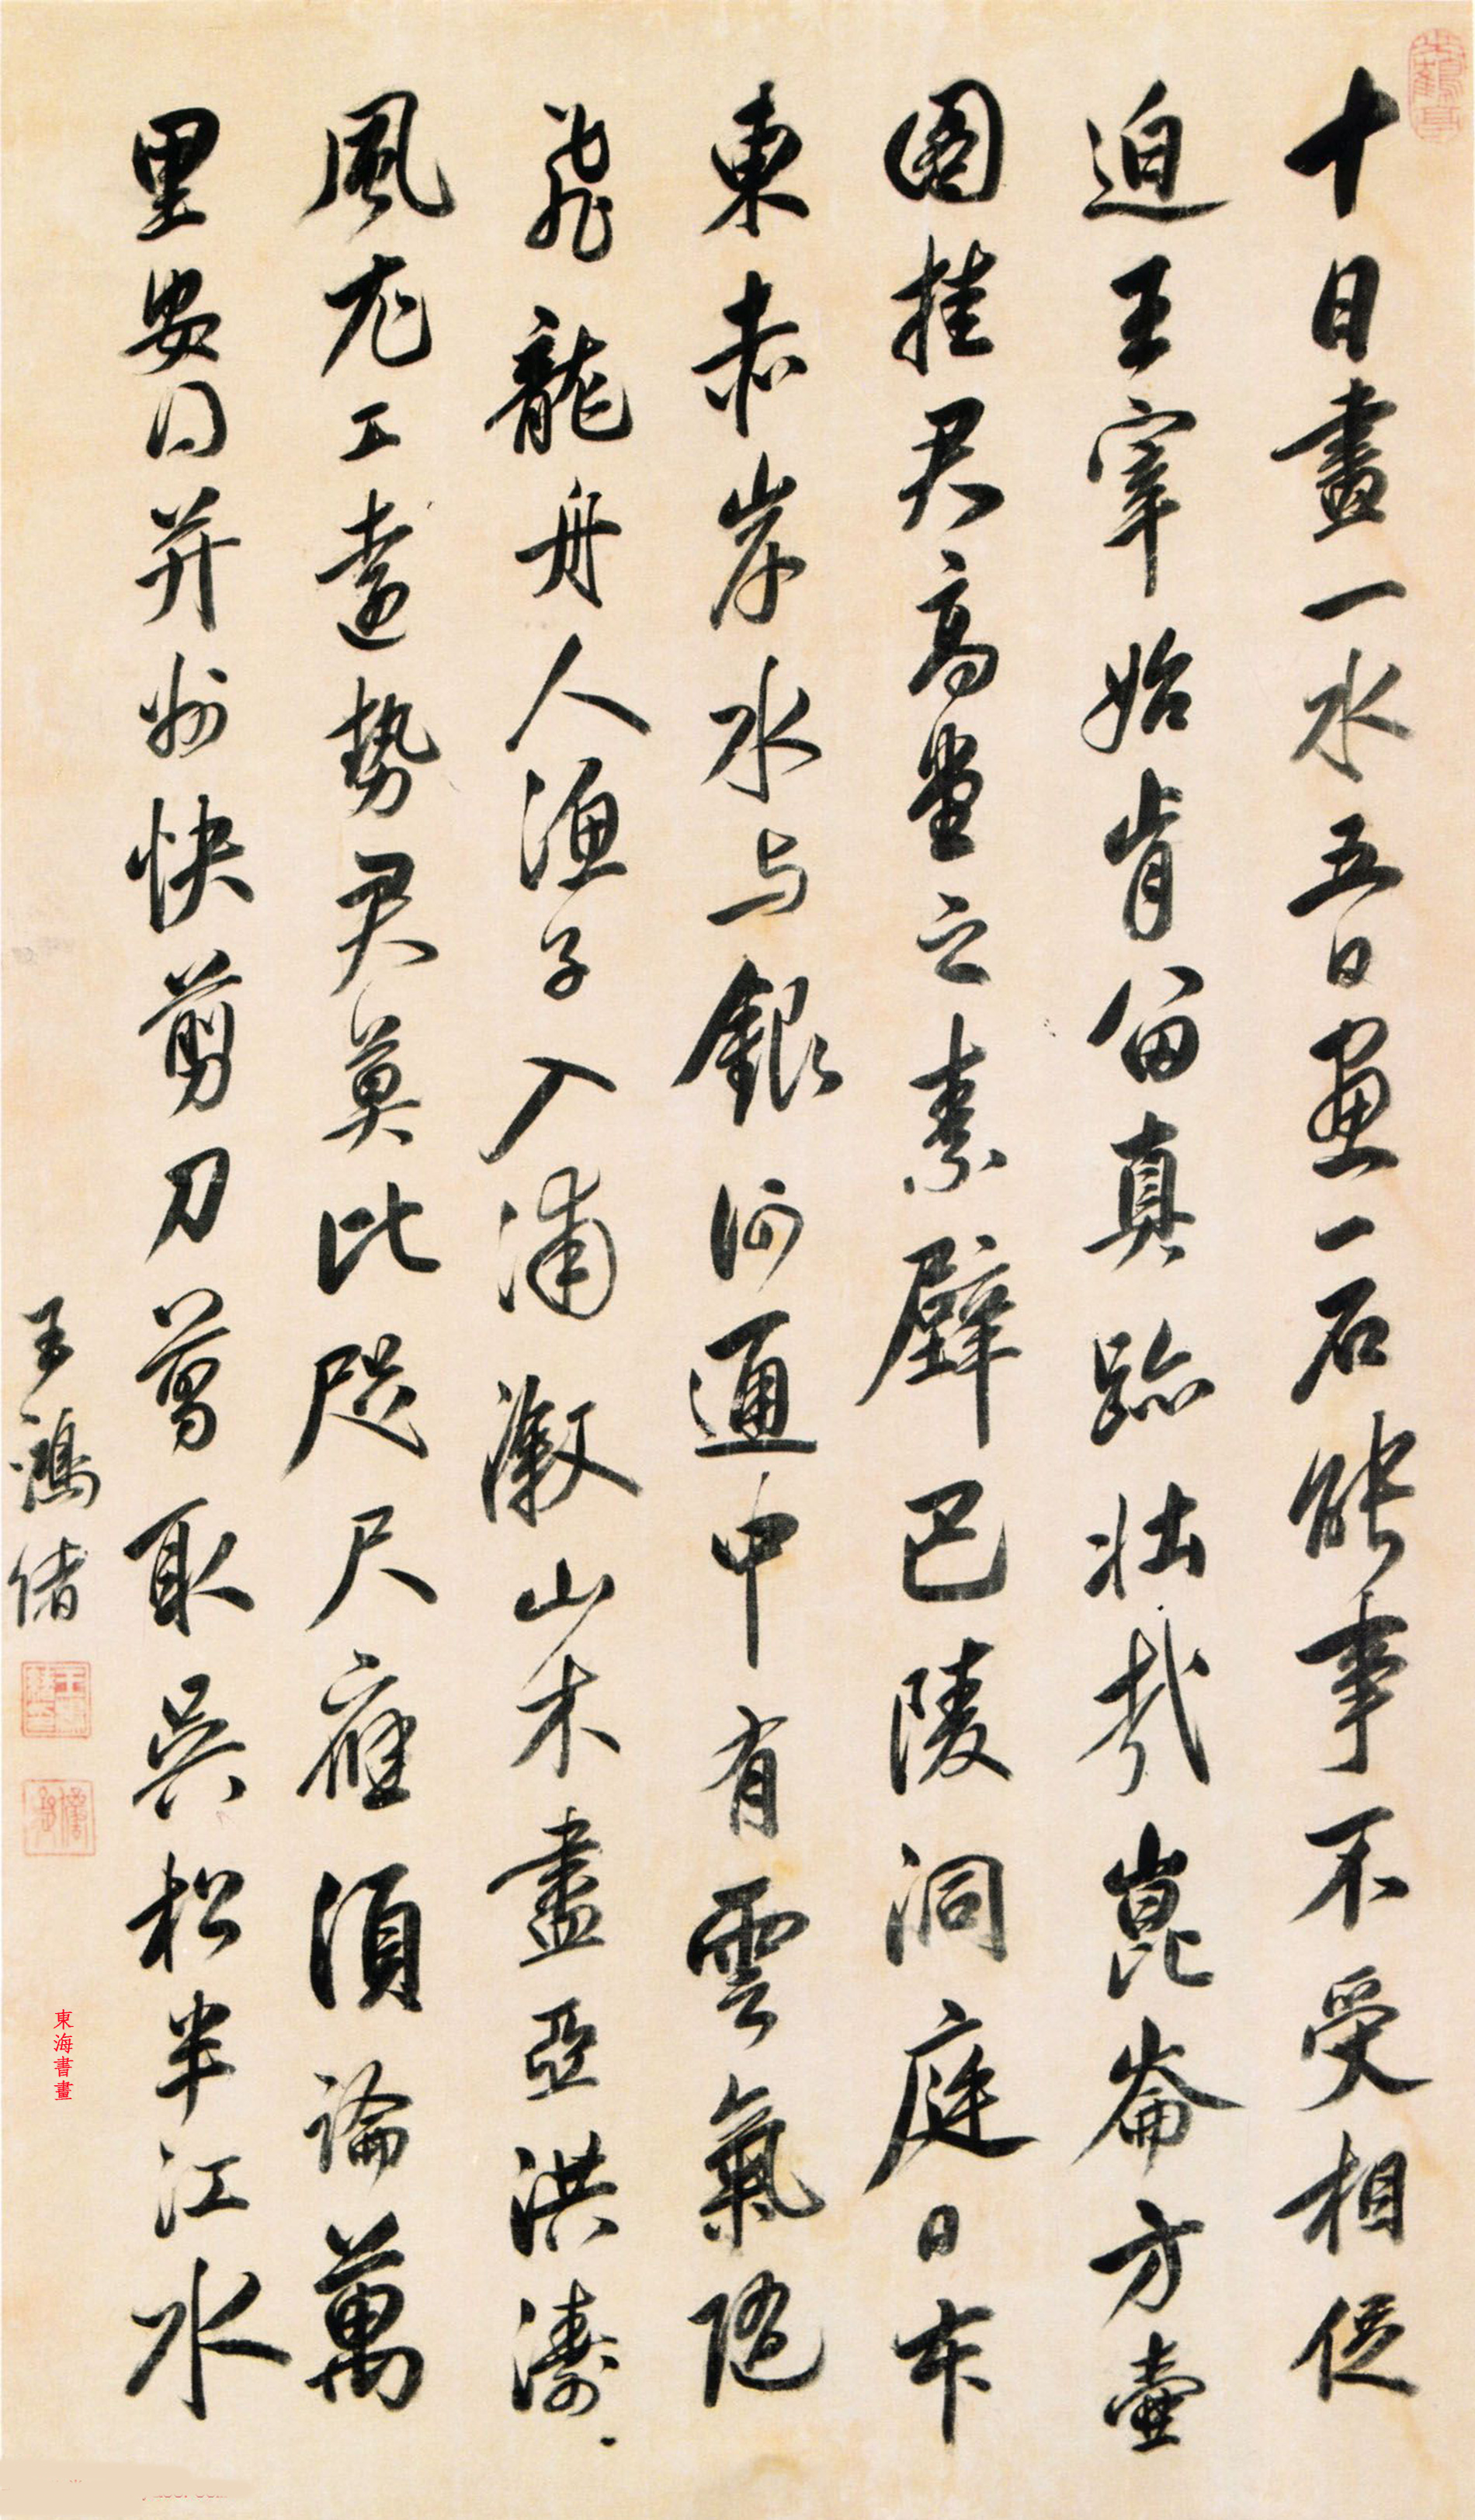 十日畫一水五日畫一石能事不受相促
迫王宰始肯留真跡壯哉崑崙方壺
圖挂君高堂之素壁巴陵洞庭日本
東赤岸水与銀河通中有雲氣隨
飛龍舟人漁子入浦漵山木盡亞洪濤
風尤工遠勢君莫比咫尺應須論萬
里安得并州快剪刀剪取吳松半江水
王鴻緒
東海書畫